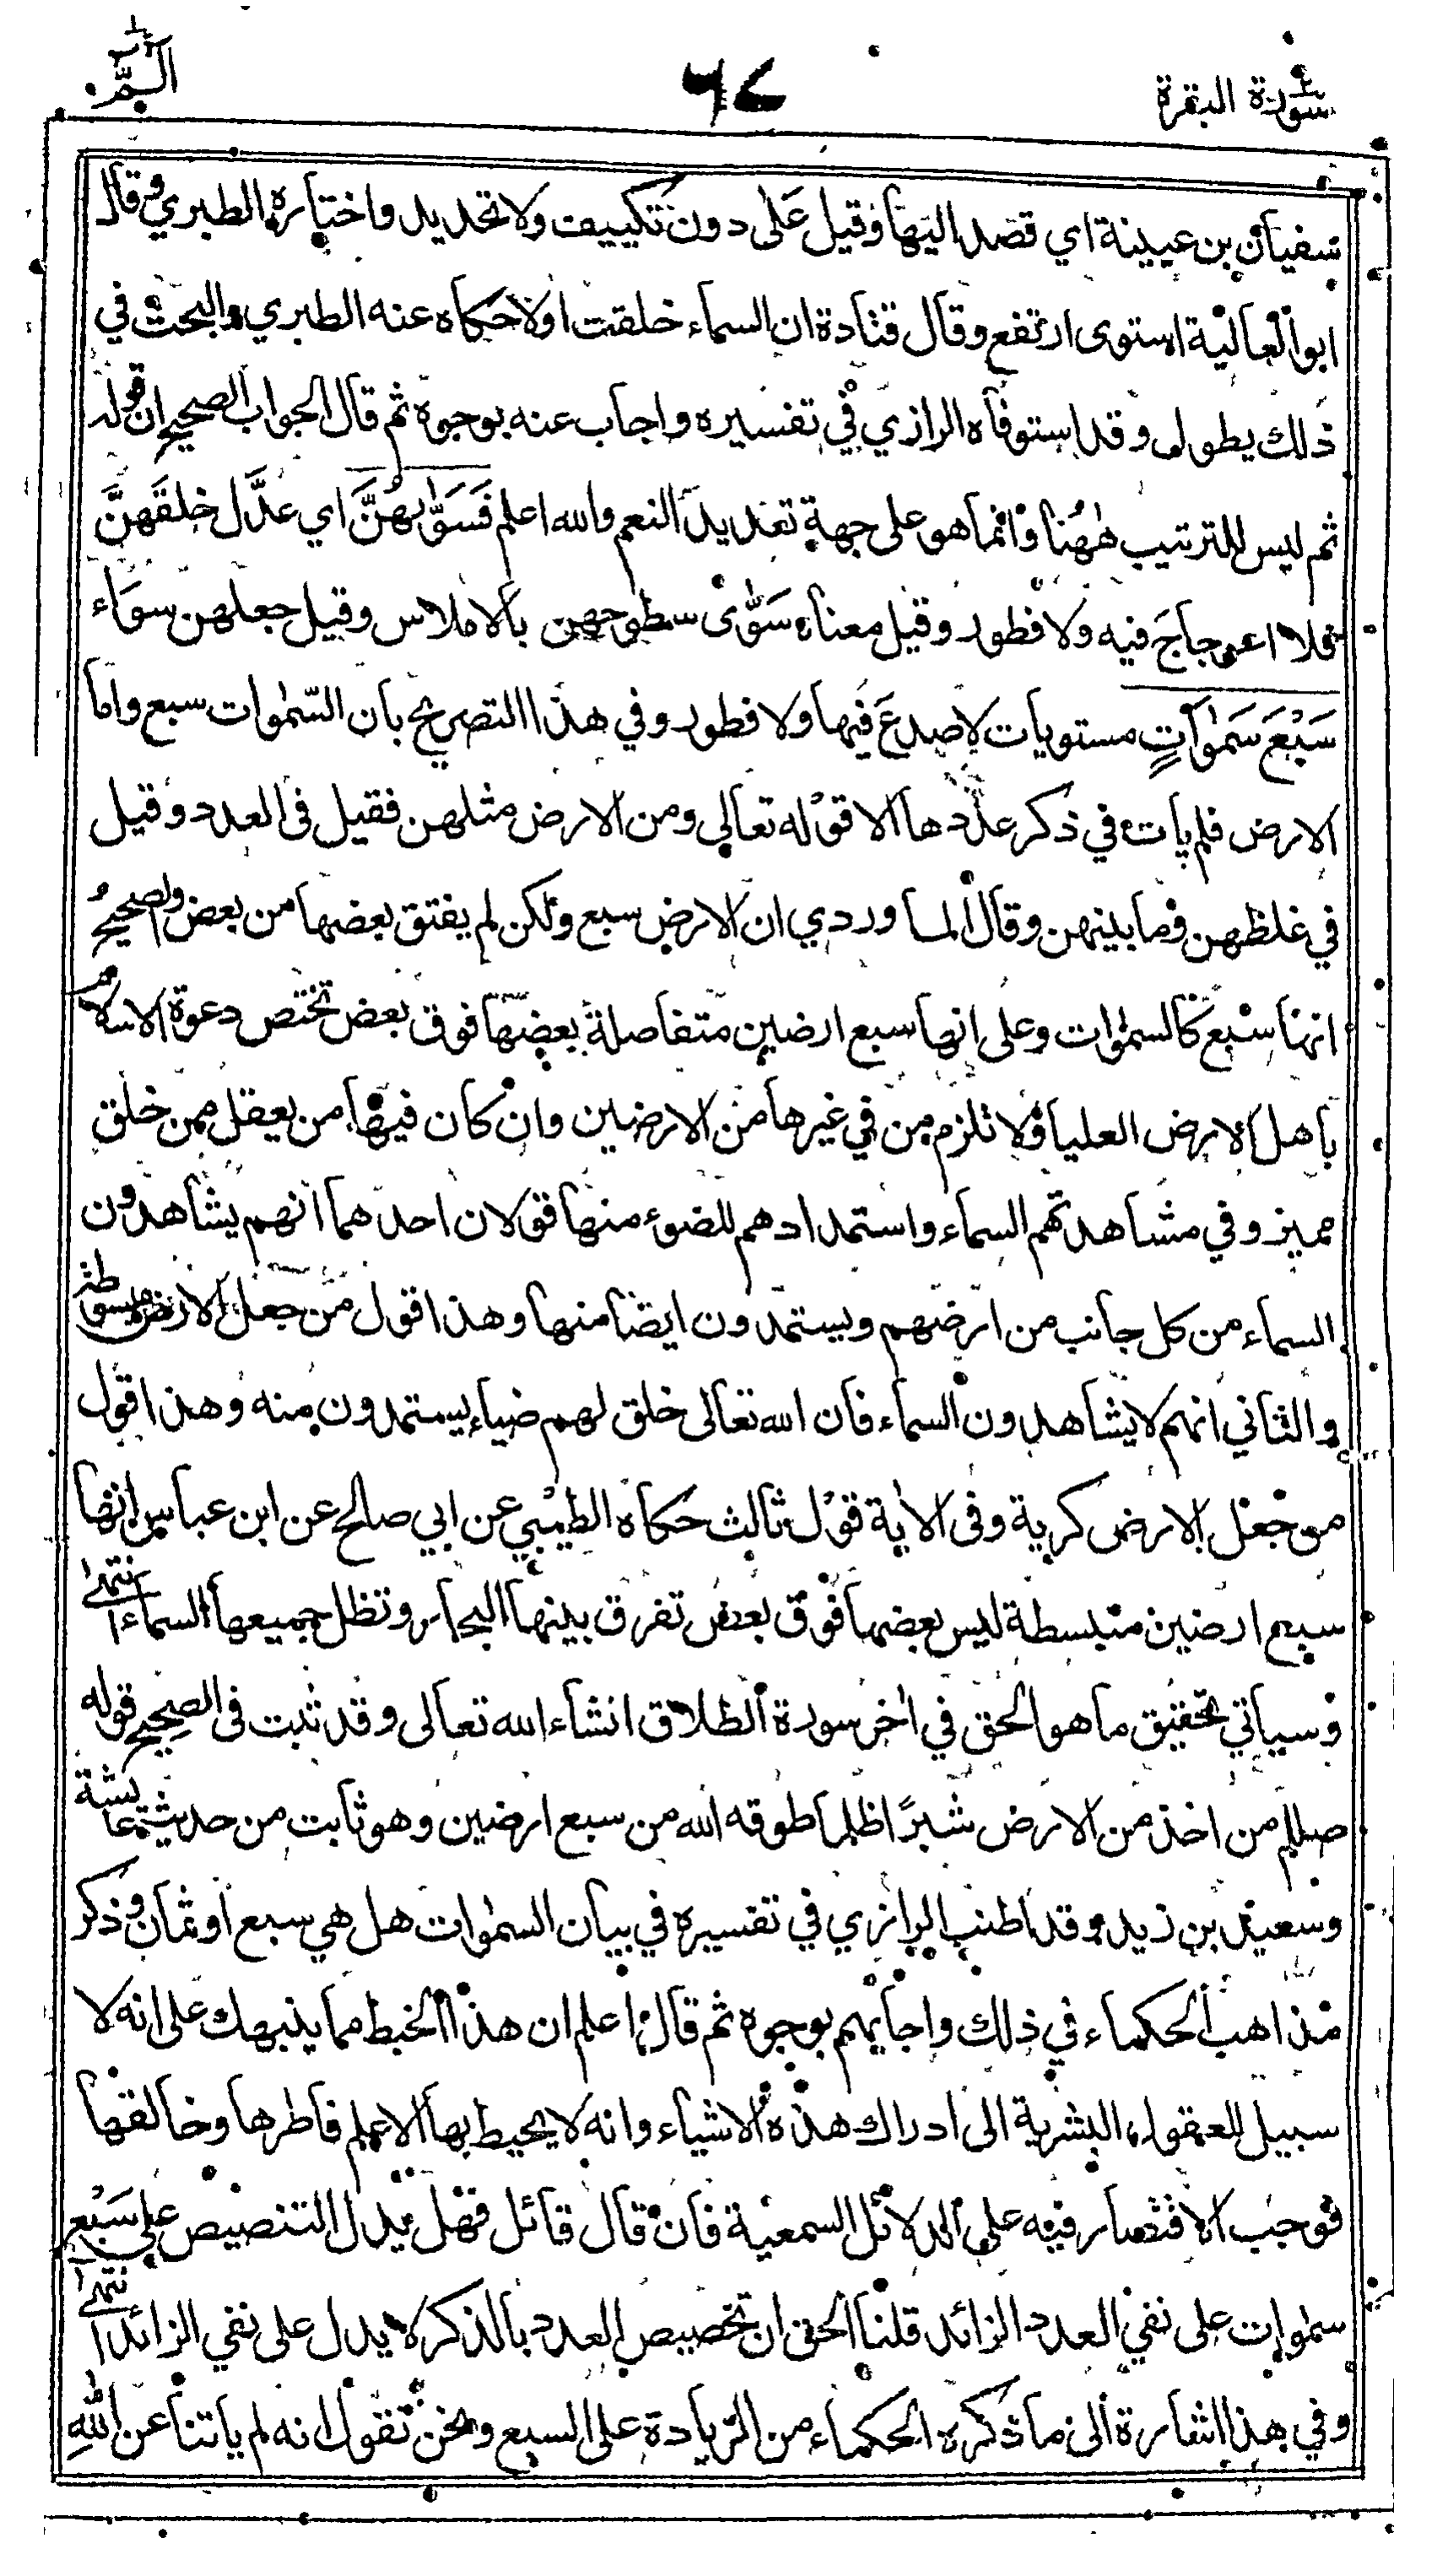 سورة البقرة ٦٧ الـمّ
سفيان بن عيينة اي قصد اليها وقيل على دون تكييف ولا تحديد واختاره الطبري وقال
ابو العالية استوى ارتفع وقال قتادة ان السماء خلقت اولا حكاه عنه الطبري والبحث في
ذلك يطول وقد استوفاه الرازي في تفسيره واجاب عنه بوجوه ثم قال الجواب الصحيح ان قوله
ثم ليس للترتيب هٰهُنا وانما هو على جهة تعديد النعم والله اعلم فَسَوّٰىهُنَّ اي عدَّل خلقَهنَّ
فلا اعوجاجَ فيه ولا فطور وقيل معناه سَوّٰى سطوحهن بالاملاس وقيل جعلهن سوَاء
سَبْعَ سَمٰوَاتٍ مستويات لا صدعَ فيها ولا فطور وفي هذا التصريح بان السّمٰوات سبع واما
الارض فلم يات في ذكر عددها الا قوله تعالى ومن الارض مثلهن فقيل فى العدد وقيل
في غلظهن وما بينهن وقال الماوردي ان الارض سبع ولكن لم يفتق بعضها من بعض والصحيح
انها سبع كالسمٰوات وعلى انها سبع ارضين متفاصلة بعضها فوق بعض تختص دعوة الاسلام
باهل الارض العليا ولا تلزم من في غيرها من الارضين وان كان فيها من يعقل ممن خلق
مميز وفي مشاهدتهم السماء واستمدادهم للضوء منها قولان احدهما انهم يشاهدون
السماء من كل جانب من ارضهم ويستمدون ايضا منها وهذا قول من جعل الارض مبسوطة
والثاني انهم لا يشاهدون السماء فان الله تعالى خلق لهم ضياء يستمدون منه وهذا قول
من جعل الارض كرية وفى الاٰية قول ثالث حكاه الطيبي عن ابي صالح عن ابن عباس انها
سبع ارضين منبسطة ليس بعضها فوق بعض تفرق بينها البحار وتظل جميعها السماء انتهىٰ
وسياتي تحقيق ما هو الحق في اٰخر سورة الطلاق انشاء الله تعالى وقد ثبت فى الصحيح قوله
صللم من اخذ من الارض شبرًا ظلما طوقه الله من سبع ارضين وهو ثابت من حديث عائشة
وسعيد بن زيد وقد اطنب الرازي في تفسيره في بيان السمٰوات هل هي سبع او ثمان وذكر
مذاهب الحكماء في ذلك واجابهم بوجوه ثم قال اعلم ان هذا الخبط مما ينبهك على انه لا
سبيل للعقول البشرية الى ادراك هذه الاشياء وانه لا يحيط بها الا علم فاطرها وخالقها
فوجب الاقتصار فيه على الدلائل السمعية فان قال قائل فهل يدل التنصيص على سَبْع
سمٰوات على نفي العدد الزائد قلنا الحق ان تخصيص العدد بالذكر لا يدل على نفي الزائد انتهىٰ
وفي هذا اشارة الى ما ذكره الحكماء من الزيادة على السبع ونحن نقول انه لم ياتنا عن اللهِ